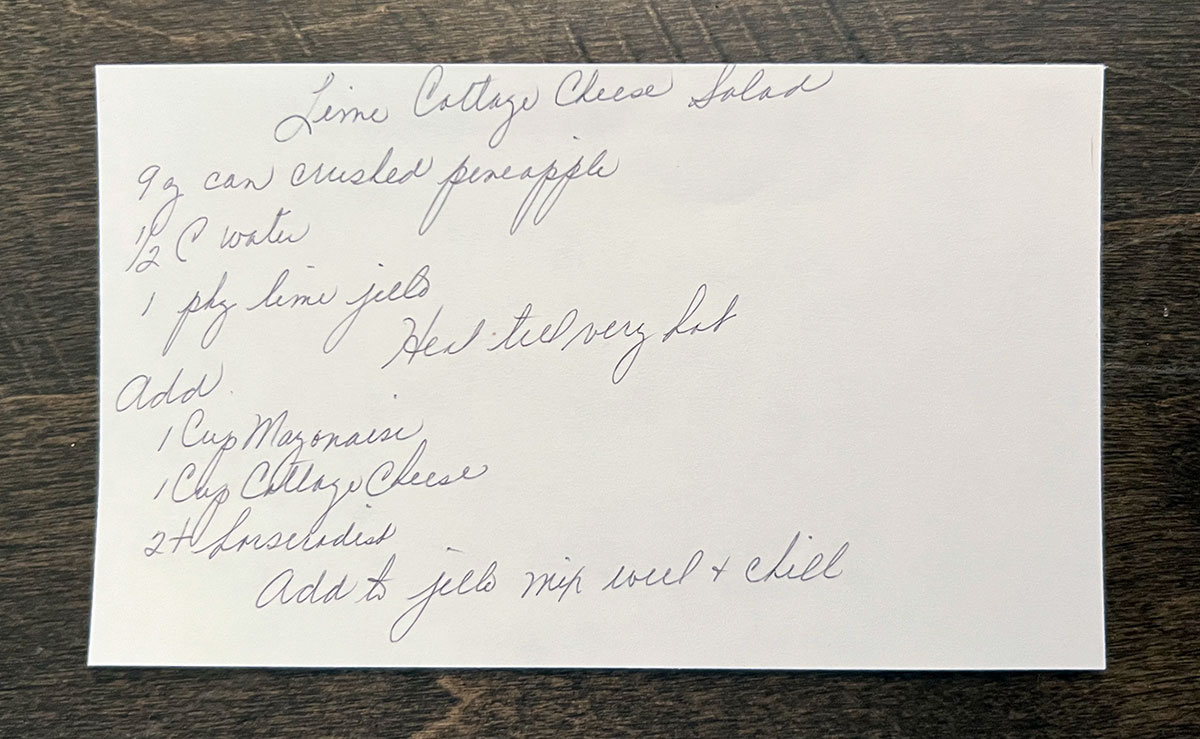 Lime Cottage Cheese Salad
9 oz can crushed pineapple
1/2 C water
1 pkg lime jello
Heat till very hot
Add
1 Cup Mayonaise
1 Cup Cottage Cheese
2 t horseradish
Add to jello mix well + chill